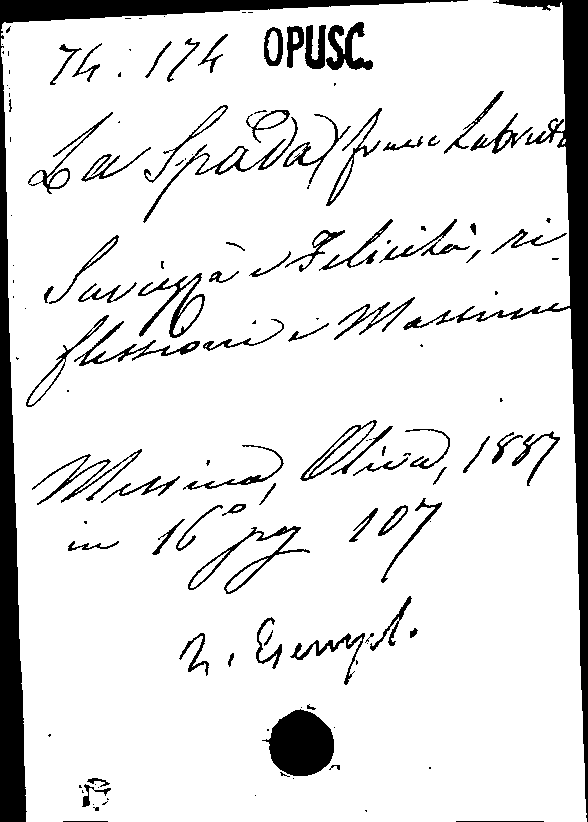 74. 174 OPUSC.
La Spada
Saviezza e Felicità, ri-
flessioni e Massime
Messina, Oliva, 1887
in 16° pag 107
2. Esempl.